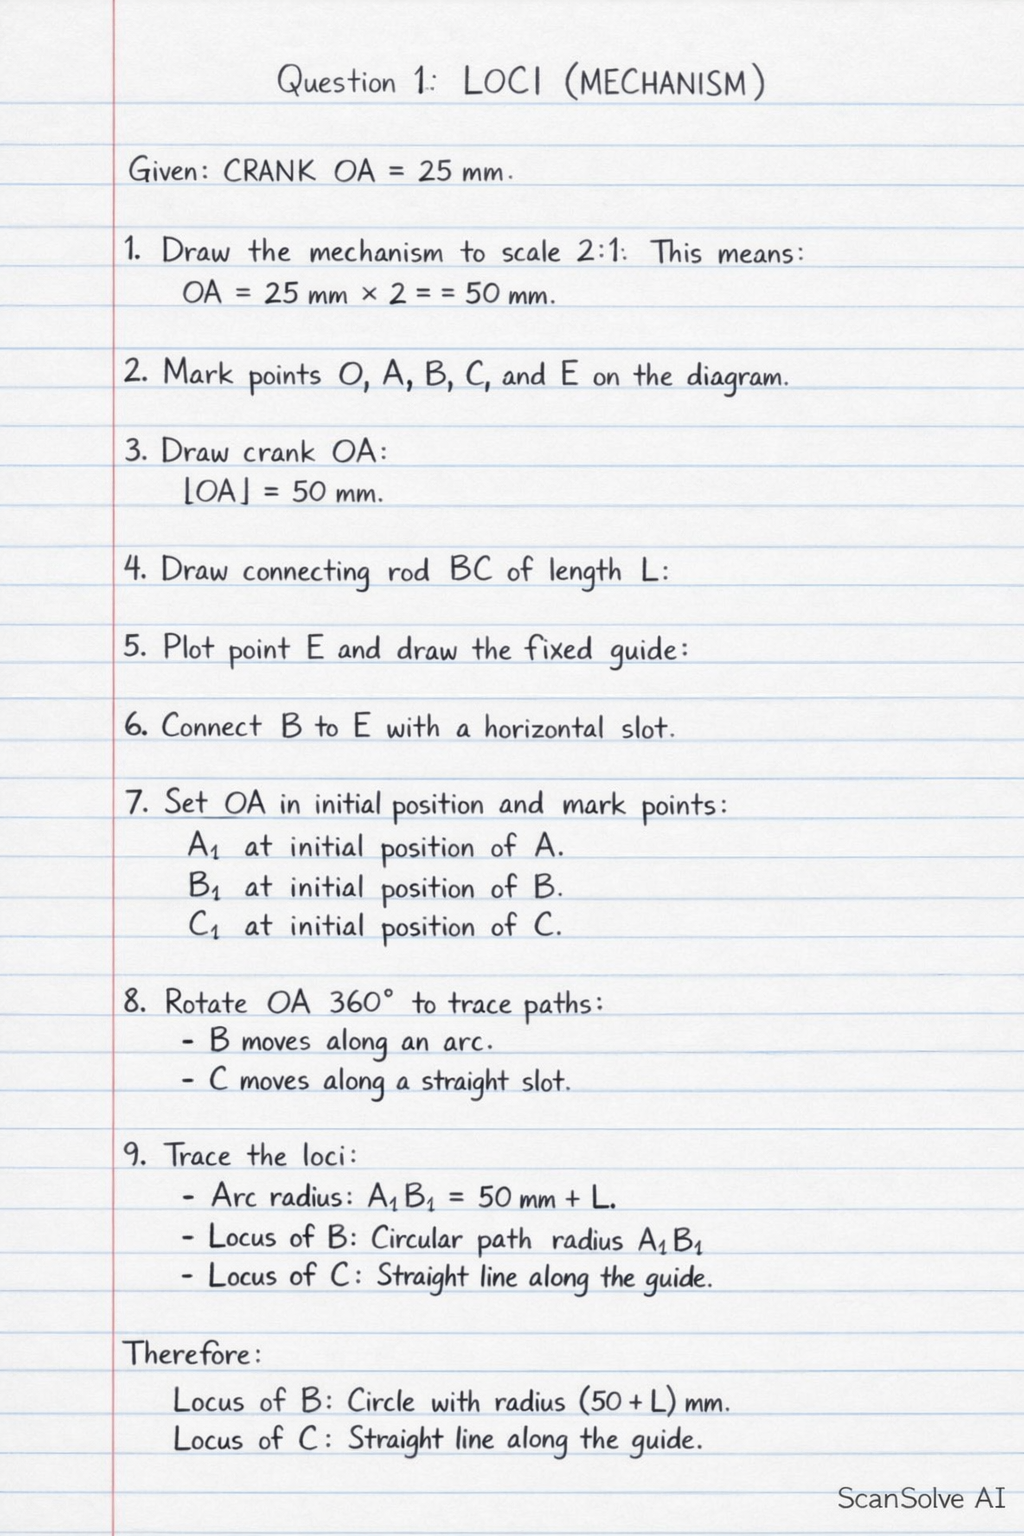 Question 1: LOCI (MECHANISM)
Given: CRANK OA = 25 mm.
1. Draw the mechanism to scale 2:1: This means:
OA = 25 mm × 2 = = 50 mm.
2. Mark points O, A, B, C, and E on the diagram.
3. Draw crank OA:
⌊OA⌋ = 50 mm.
4. Draw connecting rod BC of length L:
5. Plot point E and draw the fixed guide:
6. Connect B to E with a horizontal slot.
7. Set OA in initial position and mark points:
A₁ at initial position of A.
B₁ at initial position of B.
C₁ at initial position of C.
8. Rotate OA 360° to trace paths:
- B moves along an arc.
- C moves along a straight slot.
9. Trace the loci:
- Arc radius: A₁B₁ = 50 mm + L.
- Locus of B: Circular path radius A₁B₁
- Locus of C: Straight line along the guide.
Therefore:
Locus of B: Circle with radius (50 + L) mm.
Locus of C: Straight line along the guide.
ScanSolve AI